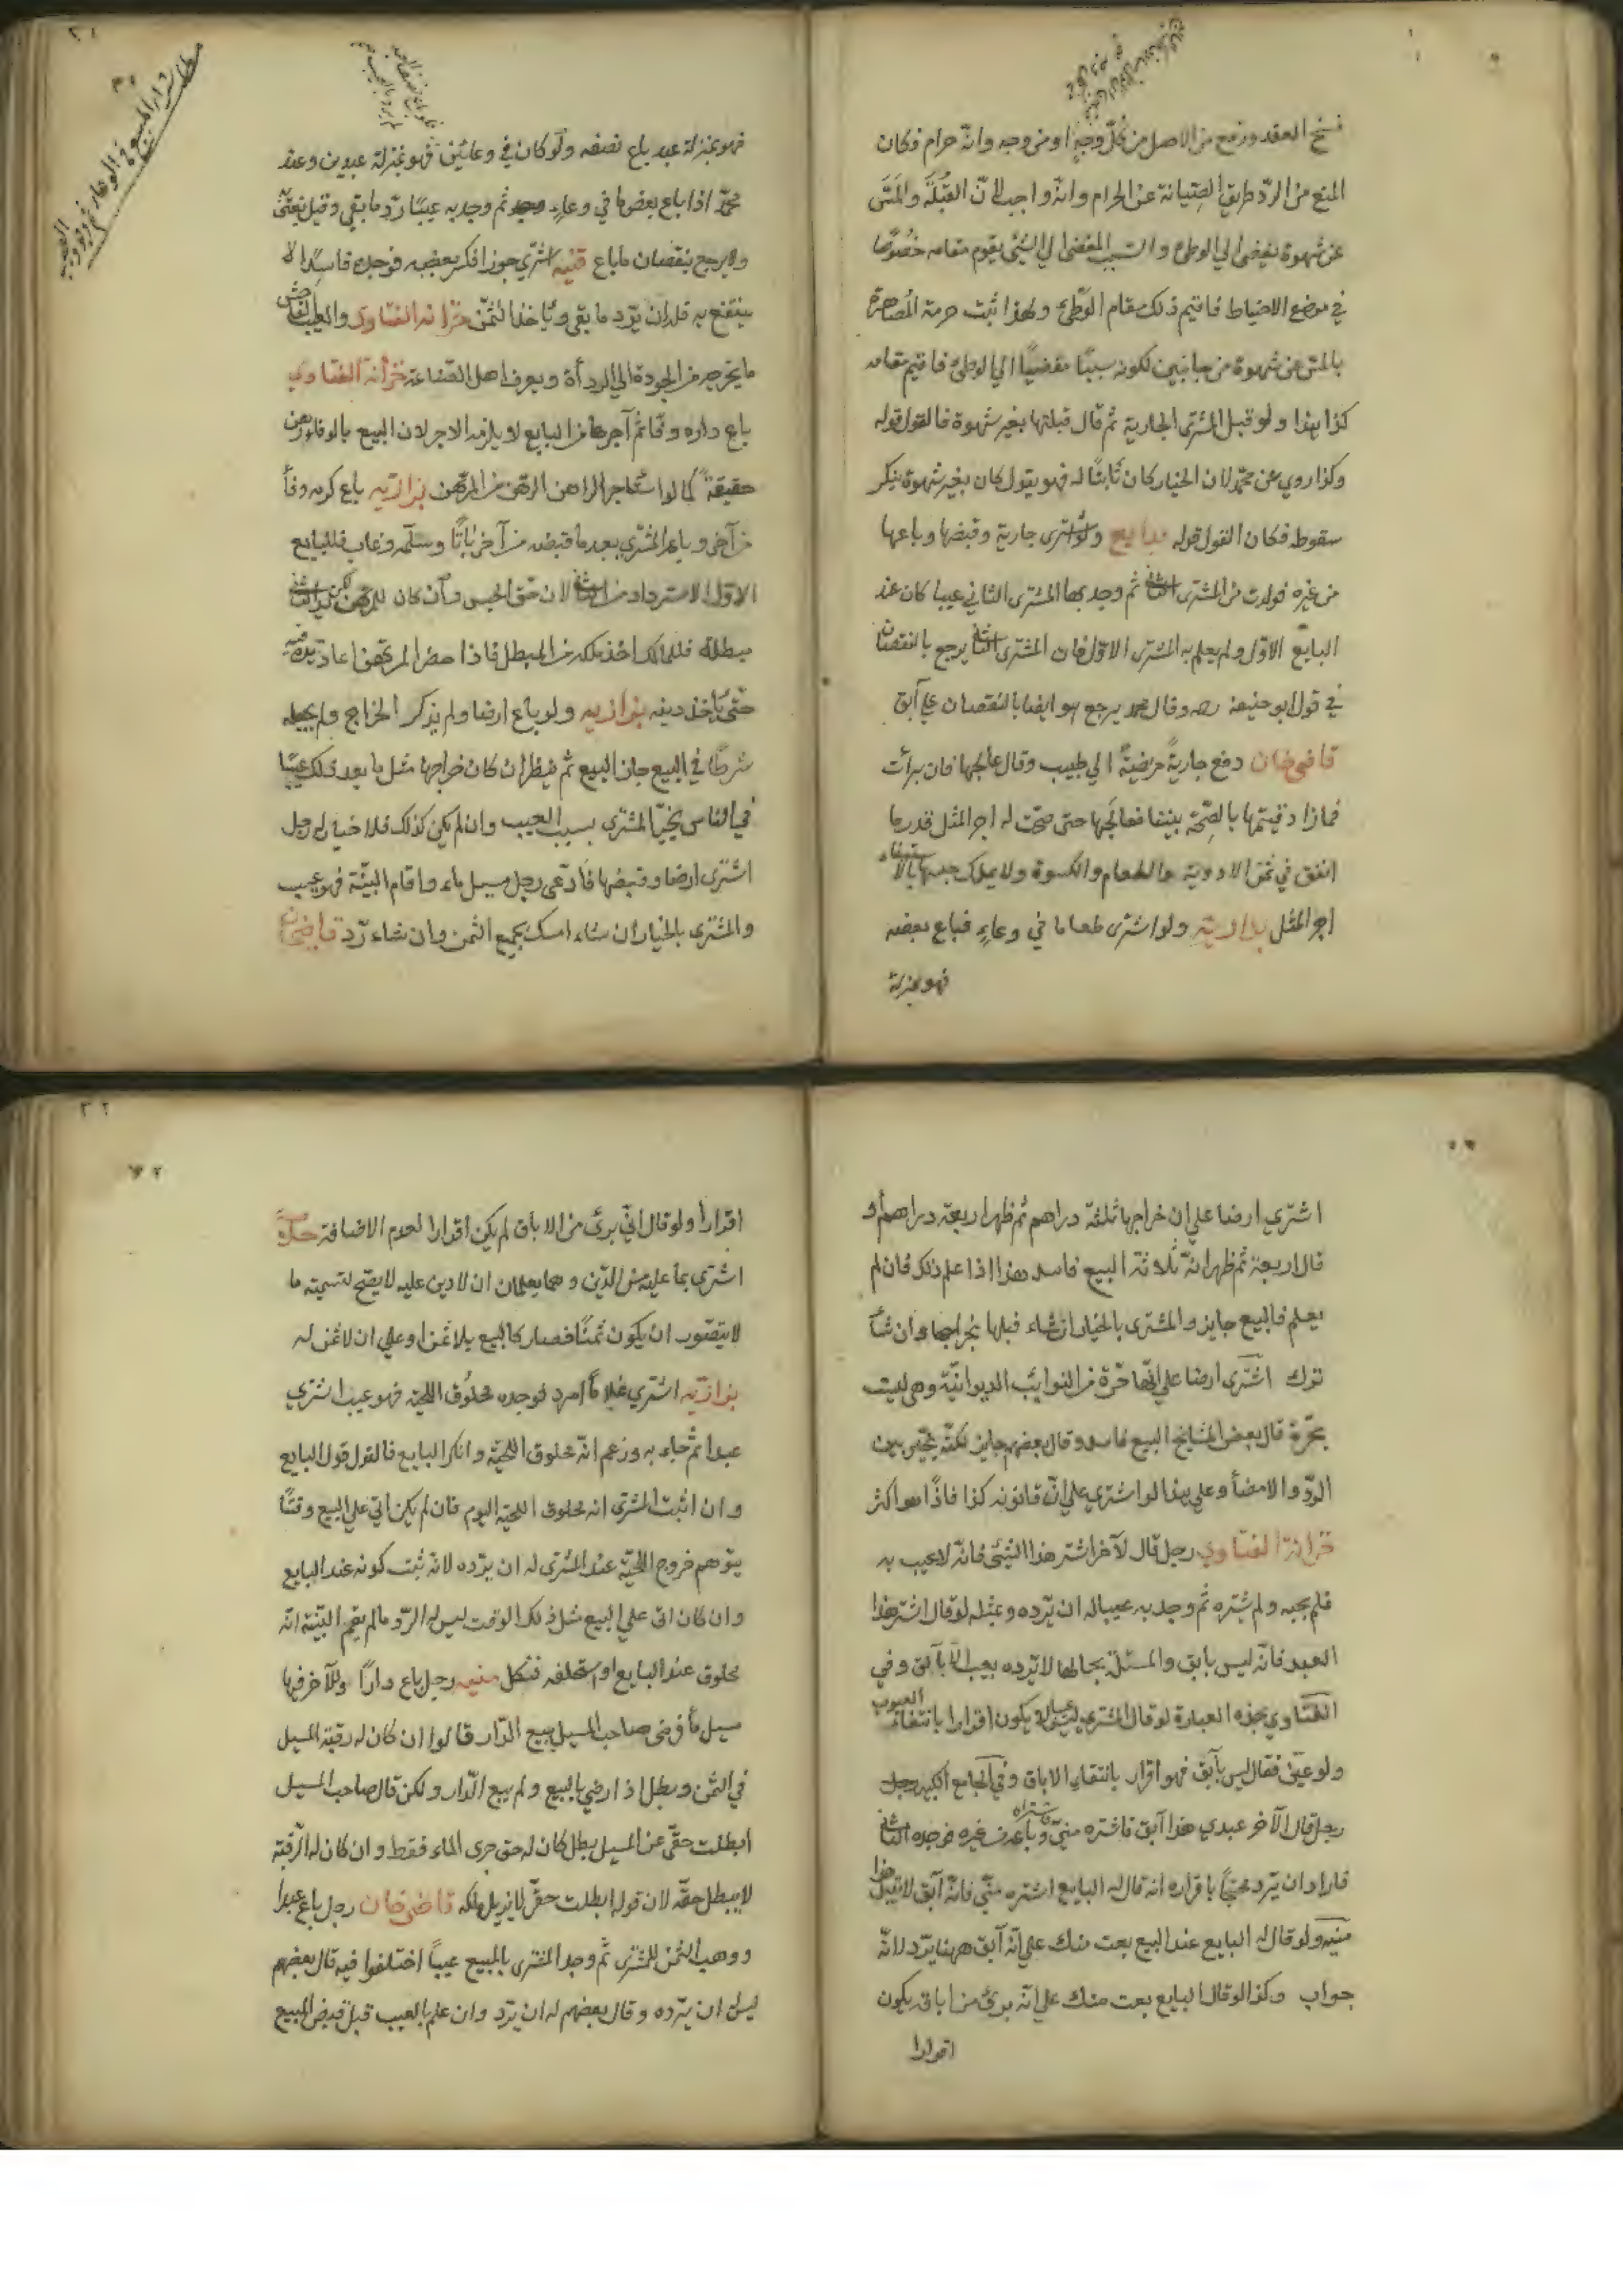 فسخ العقد ورفع من الاصل من كل وجه او من وجه وانه حرام فكان
المنع من الرد طريق الصيانة عن الحرام وانه واجب لان القبلة والمس
عن شهوة يفضي الي الوطئ والسبب المفضي الي الشئ يقوم مقامه خصوصا
في موضع الاحتياط فاقيم ذلك مقام الوطئ ولهذا ثبت حرمة المصاهرة
بالمس عن شهوة من جانبين لكونه سببا مفضيا الي الوطئ فاقيم مقامه
كذا هذا ولو قبل المشتري الجارية ثم قال قبلتها بغير شهوة فالقول قوله
وكذا روي عن محمد لان الخيار كان ثابتا له فهو يقول كان بغير شهوة ينكر
سقوطه فكان القول قوله بدايع ولو اشترى جارية وقبضها وباعها
من غيره فولدت من المشتري الثاني ثم وجد بها المشتري الثاني عيبا كان عند
البايع الاول ولم يعلم به المشتري الاول فان المشتري الثاني يرجع بالنقصان
في قول ابو حنيفة رحه وقال محمد يرجع هو ايضا بالنقصان علي
قاضي خان دفع جارية مريضة الي طبيب وقال عالجها فان برأت
فما زاد قيمتها بالصحة بيننا فعالجها حتى صحت له اجر المثل قدر ما
انفق في ثمن الادوية والطعام والكسوة ولا يملك حبسها بالاستيفاء
اجر المثل بزازيه ولو اشترى طعاما في وعاء فباع بعضه
فهو بمنزلة
فهو بمنزلة عبد باع نصفه ولو كان في وعائين فهو بمنزلة عبدين وعند
محمد اذا باع بعضها في وعاء ثم وجد به عيبا رد ما بقي وقيل يفتى
ولا يرجع بنقصان ما باع قنيه اشترى جوزا فكسر بعضه فوجده فاسدا لا
ينتفع به فله ان يرد ما بقي ويأخذ الثمن خزانة الفتاوى والعيب الفاحش
ما يخرجه من الجودة الي الرداة ويعرف اهل الصناعة خزانة الفتاوي
باع داره وفا ثم آجرها من البايع لا يلزمه الاجر لان البيع بالوفاء رهن
حقيقة كما لو استاجر الراهن الرهن من المرتهن بزازيه باع كرمه وفأ
من آخر وباع المشتري بعد ما قبضه من آخر باتا وسلمه وغاب فللبايع
الاول الاسترداد من الثاني لان حق الحبس وان كان للمرتهن لكن يد الثاني
مبطلة فللمالك اخذ ملكه من المبطل فاذا حضر المرتهن اعاد يده فيه
حتى يأخذ دينه بزازيه ولو باع ارضا ولم يذكر الخراج ولم يجعله
شرطا في البيع جاز البيع ثم ينظر ان كان خراجها مثل ما يعد ذلك عيبا
في الناس يخير المشتري بسبب العيب وان لم يكن كذلك فلا خيار له رجل
اشترى ارضا وقبضها فادعى رجل مسيل ماء واقام البينة فهو عيب
والمشترى بالخيار ان شاء امسك بجميع الثمن وان شاء رد قاضيخان
اشتري ارضا علي ان خراجها ثلثة دراهم ثم ظهر اربعة دراهم أو
قال اربعة ثم ظهر انه ثلاثة البيع فاسد هذا اذا علم ذلك فان لم
يعلم فالبيع جايز والمشترى بالخيار ان شاء قبلها بخراجها وان شأ
ترك اشترى ارضا علي انها حرة من النوايب الديوانية وهي ليست
بحرة قال بعض المشايخ البيع فاسد وقال بعضهم جايز لكنه يخير بين
الرد والامضأ وعلي هذا لو اشتري علي ان قانونه كذا فاذا هو اكثر
خزانة الفتاوي رجل قال لآخر اشتر هذا الشئ فانه لا عيب به
فلم يجبه ولم يشتره ثم وجد به عيبا له ان يرده وعثله لو قال اشتر هذا
العبد فانه ليس بابق والمسئلة بحالها لا يرده بعيب الاباق وفي
الفتاوي بهذه العبارة لو قال المشتري ليس به يكون اقرارا بانتفاء العيوب
ولو عين فقال ليس بآبق فهو اقرار بانتفاء الاباق وفي الجامع الكبير
رجل قال الآخر عبدي هذا آبق فاشتره مني فاشتراه وباعه من غيره فوجده الثاني
فاراد ان يرد محتجا باقراره انه قال له البايع اشتره مني فانه آبق لا يقبل هذا
منيه ولو قال له البايع عند البيع بعت منك علي انه آبق ههنا يرد لانه
جواب وكذا لو قال البايع بعت منك علي انه برئ من اباقه يكون
اقرارا
اقرارا ولو قال اني برئ من الاباق لم يكن اقرارا لعدم الاضافة
اشترى بما عليه من الدين وهما يعلمان ان لا دين عليه لا يصح لتسمية ما
لا يتصور ان يكون ثمنا فصار كالبيع بلا ثمن او علي ان لا ثمن له
بزازيه اشتري غلاما أمرد فوجده محلوق اللحية فهو عيب اشتري
عبدا ثم جاء به وزعم انه محلوق اللحية وانكر البايع فالقول قول البايع
وان اثبت المشترى انه محلوق اللحية اليوم فان لم يكن اتي علي البيع وقتا
يتوهم خروج اللحية عند المشترى له ان يرده لانه ثبت كونه عند البايع
وان كان اتى علي البيع مثل ذلك الوقت ليس له الرد مالم يقم البينة انه
محلوق عند البايع او استحلفه فنكل منيه رجل باع دارا وللآخر فيها
مسيل مأ فرضي صاحب المسيل ببيع الدار قالوا ان كان له رقبة المسيل
في الثمن وبطل اذا رضي بالبيع ولم يبع الدار ولكن قال صاحب المسيل
ابطلت حقي عن المسيل بطل كان له حق جرى الماء فقط وان كان له الرقبة
لا يبطل حقه لان قوله ابطلت حقي لا يزيل ملكه قاضي خان رجل باع عبدا
ووهب الثمن للمشترى ثم وجد المشترى بالمبيع عيبا اختلفوا فيه قال بعضهم
ليس له ان يرده وقال بعضهم له ان يرد وان علم بالعيب قبل قبض المبيع